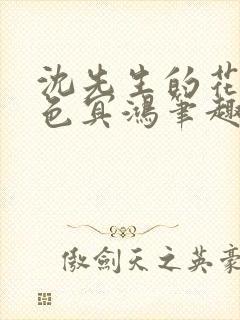 沈先生的花
色冥鴻筆趣
傲劍天之英豪